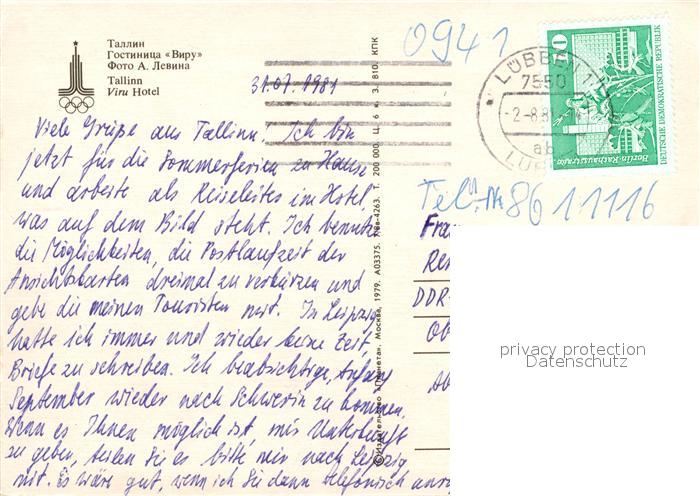 Таллин
Гостиница «Виру»
Фото А. Левина
Tallinn
Viru Hotel
31.07.1981
Viele Grüße aus Tallinn! Ich bin
jetzt für die Sommerferien zu Hause
und arbeite als Reiseleiter im Hotel,
was auf dem Bild steht. Ich benutze
die Möglichkeiten, die Postlaufzeit der
Ansichtskarten dreimal zu verkürzen und
gebe die meinen Touristen mit. In Leipzig
hatte ich immer und wieder keine Zeit
Briefe zu schreiben. Ich beabsichtige, Anfang
September wieder nach Schwerin zu kommen.
Wenn es Ihnen möglich ist, mir Unterkunft
zu geben, teilen Sie es bitte mir nach Leipzig
mit. Es wäre gut, wenn ich Sie dann telefonisch
© Издательство «Планета». Москва, 1979. А03375. 4263. Т. 200 000. Ц. 6 к. З. 810. КПК
0941
LÜBBEN 1
7550
-2-8.8
ab
10
DEUTSCHE DEMOKRATISCHE REPUBLIK
Berlin, Rathausstraße
Tel. Nr. 8611116
Fra
DDR-
Ob
privacy protection
Datenschutz